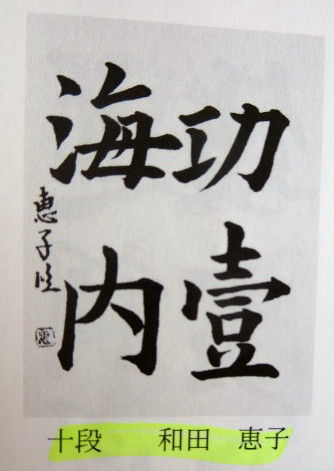 功壹
海内
恵子臨
十段　和田　恵子